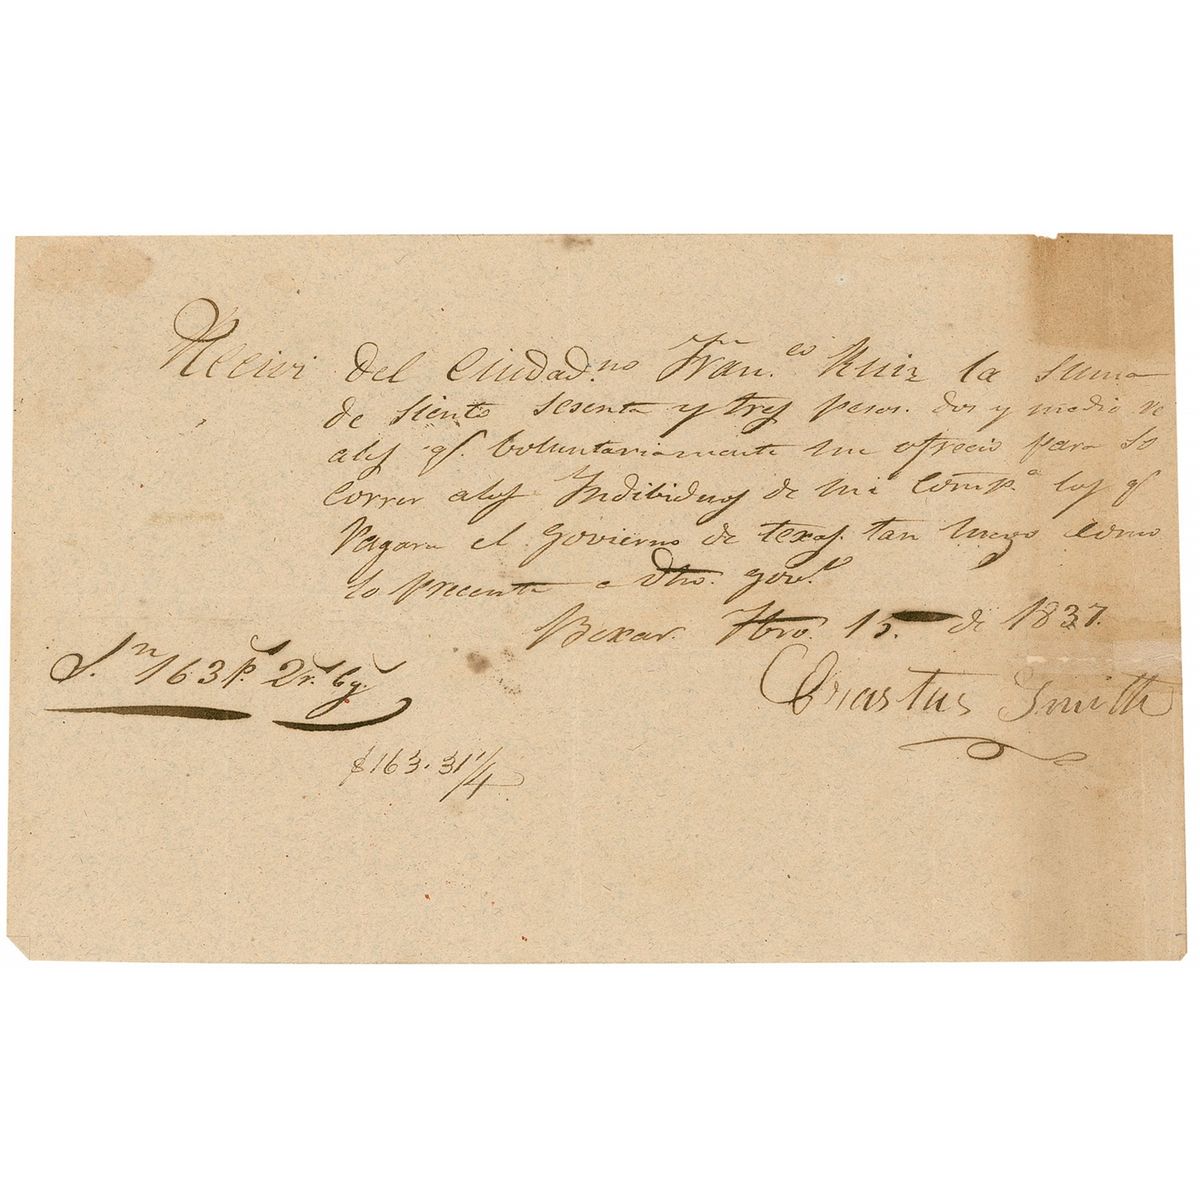 Recivi del Ciudad.no Fran.co Ruiz la suma
de siento sesenta y tres pesos dos y medio re
ales q.e boluntariamente me ofrecio para So
correr a los Indibiduos de mi Comp.a los q.e
Pagara el govierno de texas tan luego como
lo precente a dho. gov.o
Bexar. 15 de 1837.
Erastus Smith
S.n 163 p.s 2 r.s
$163.31 1/4